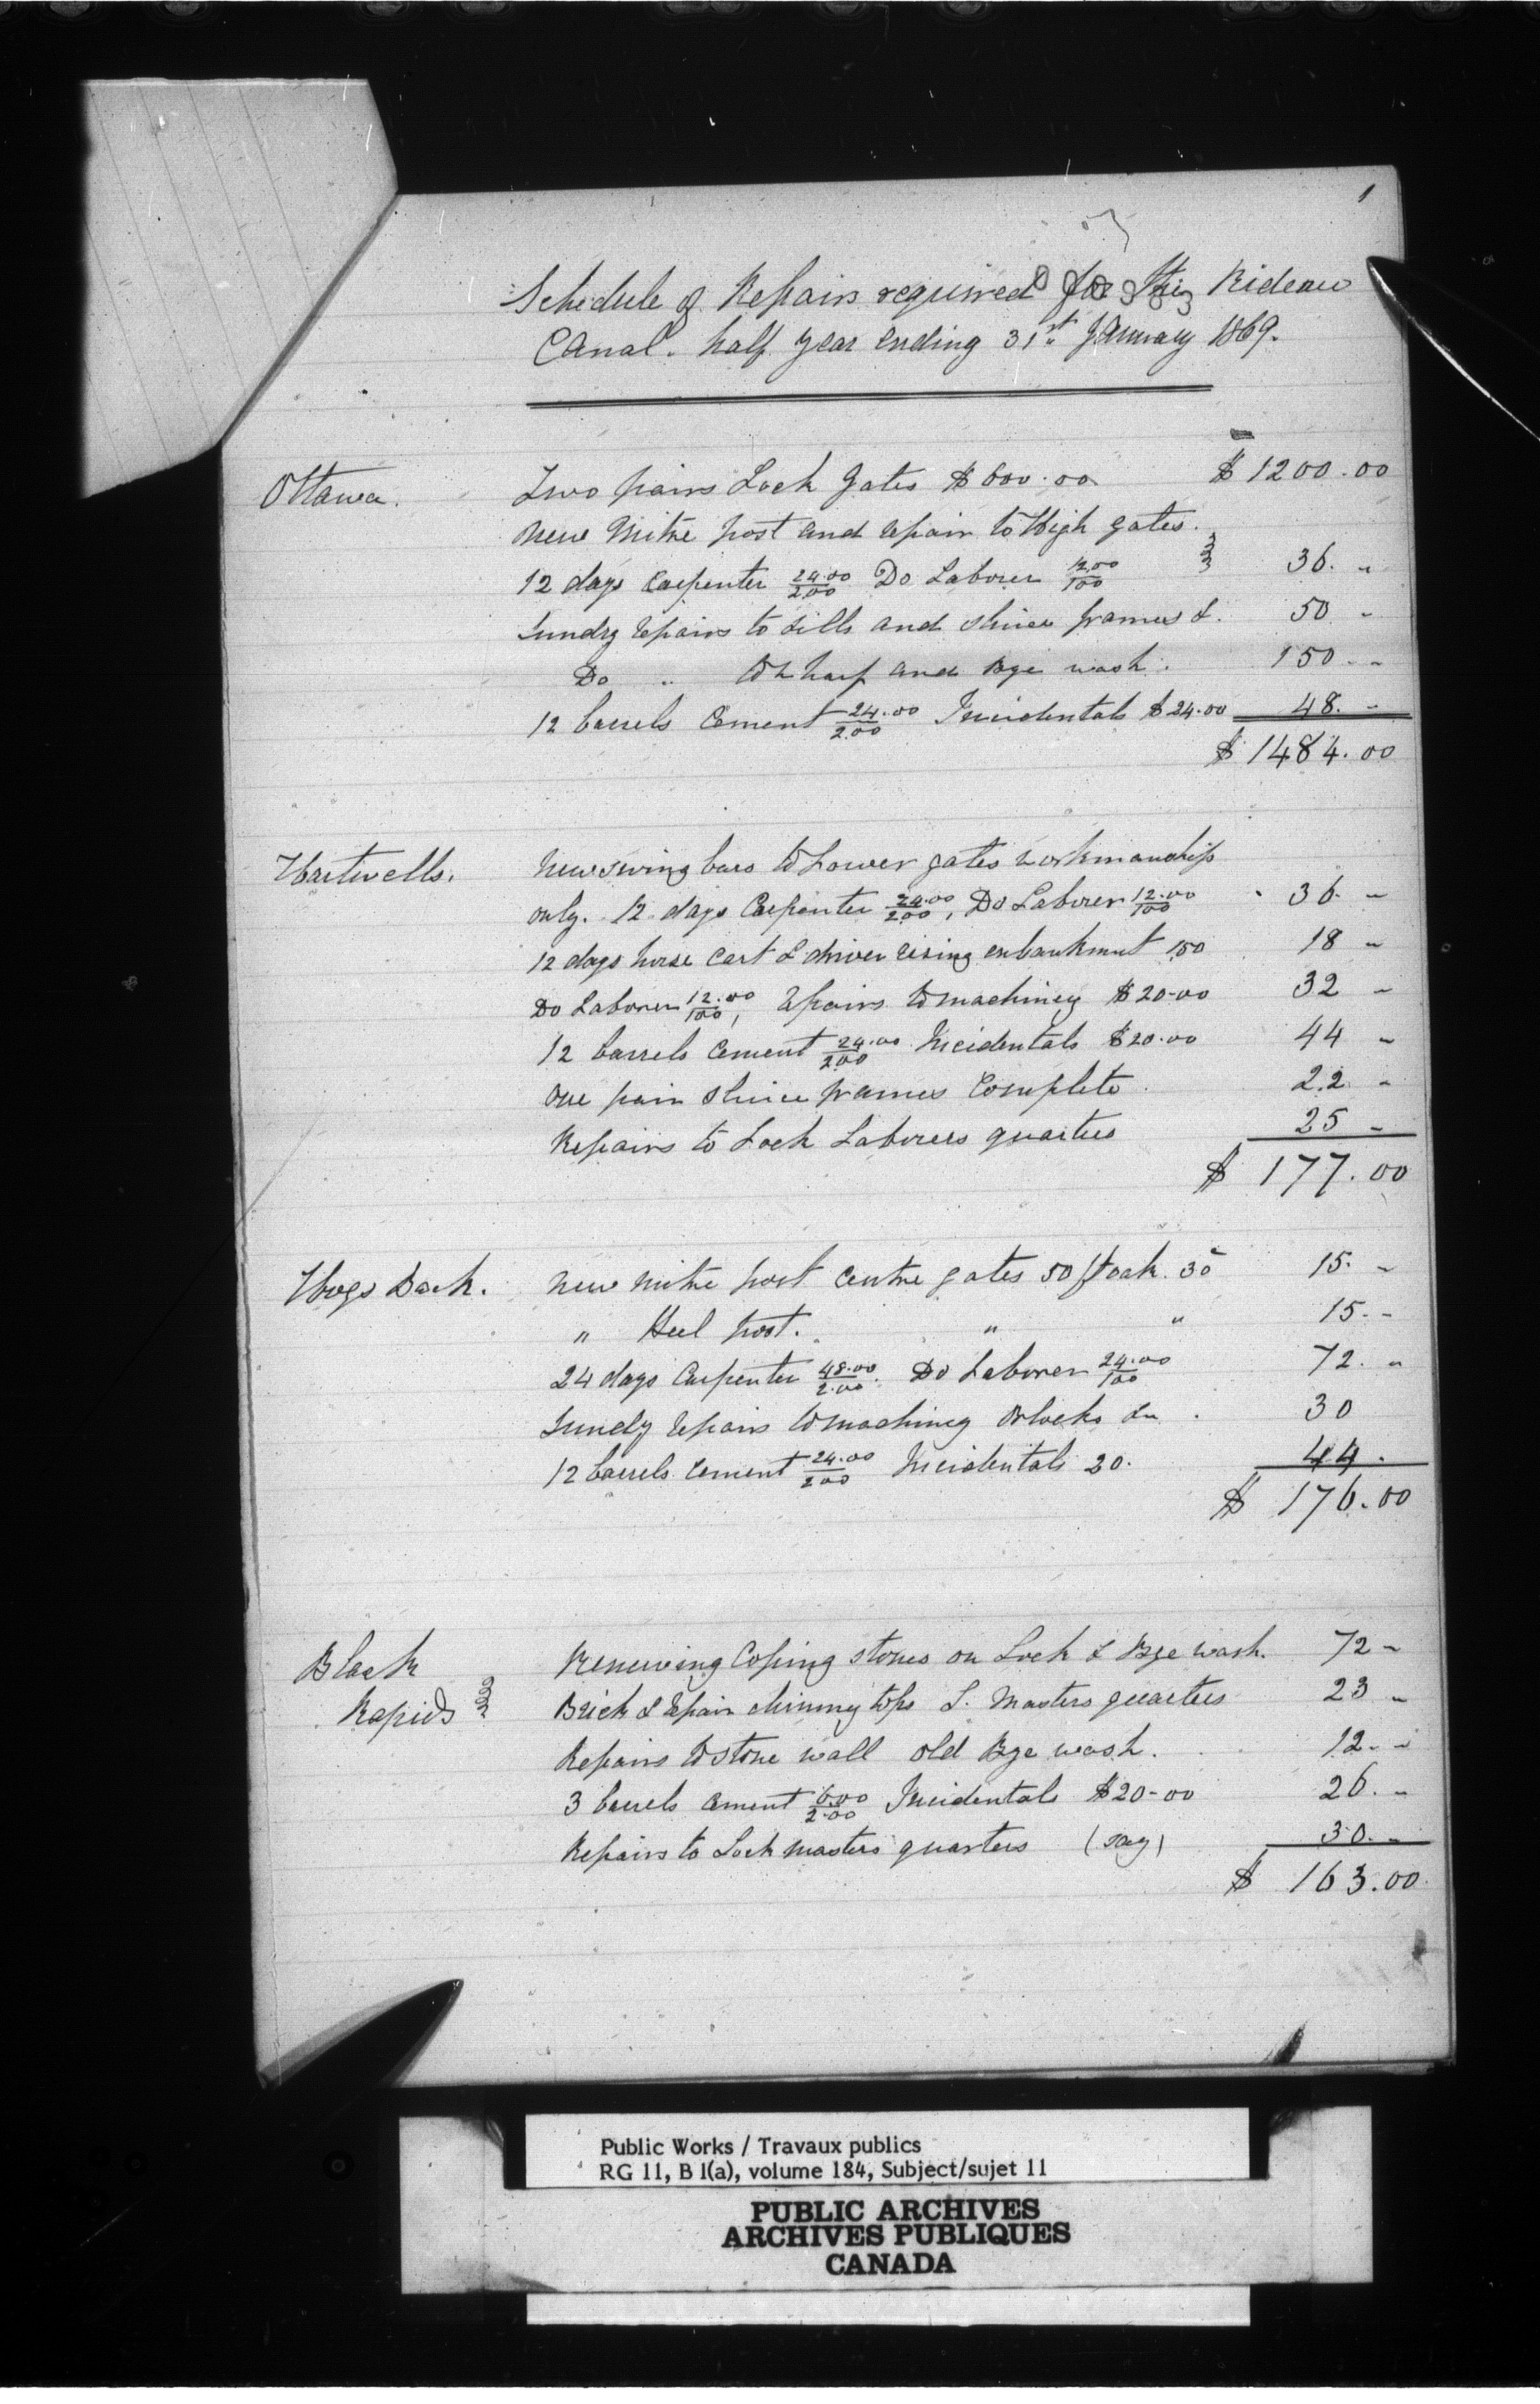 1
Schedule of Repairs required for the Rideau
Canal. half year ending 31st January 1869.
Ottawa. Two pairs Lock Gates $600.00 $1200.00
New Mitre post and repair to High gates.
12 days Carpenter 24.00/2.00 Do Laborer 12.00/100 36. "
Sundry repairs to sills and sluice frames &. 50 "
Do " Wharf and Bye wash. 150. "
12 barrels Cement 24.00/2.00 Incidentals $24.00 48. "
$1484.00
Hartwells. New swing bars to Lower gates workmanship
only. 12 days Carpenter 24.00/2.00, Do Laborer 12.00/100 36. "
12 days horse cart & driver rising enbankment 150 18 "
Do Laborer 12.00/100, repairs to machinery $20.00 32 "
12 barrels Cement 24.00/2.00 Incidentals $20.00 44 "
One pair sluice frames Complete 22 "
Repairs to Lock Laborers quarters 25 "
$ 177.00
Hogs Back. New mitre post centre gates 50 ft oak. 30 15. "
" Heel post. " " 15. "
24 days Carpenter 48.00/2.00. Do Laborer 24.00/100 72. "
Sundry repairs to machinery Blocks &c 30
12 barrels Cement 24.00/2.00 Incidentals 20. 44.
$ 176.00
Black Renewing Coping stones on Lock & Bye wash. 72 "
Rapids Brick & repair chimney tops L. Masters quarters 23 "
Repairs to stone wall old Bye wash. 12. "
3 barrels cement 6.00/2.00 Incidentals $20.00 26. "
Repairs to Lock masters quarters (say) 30. "
$ 163.00
Public Works / Travaux publics
RG 11, B 1(a), volume 184, Subject/sujet 11
PUBLIC ARCHIVES
ARCHIVES PUBLIQUES
CANADA